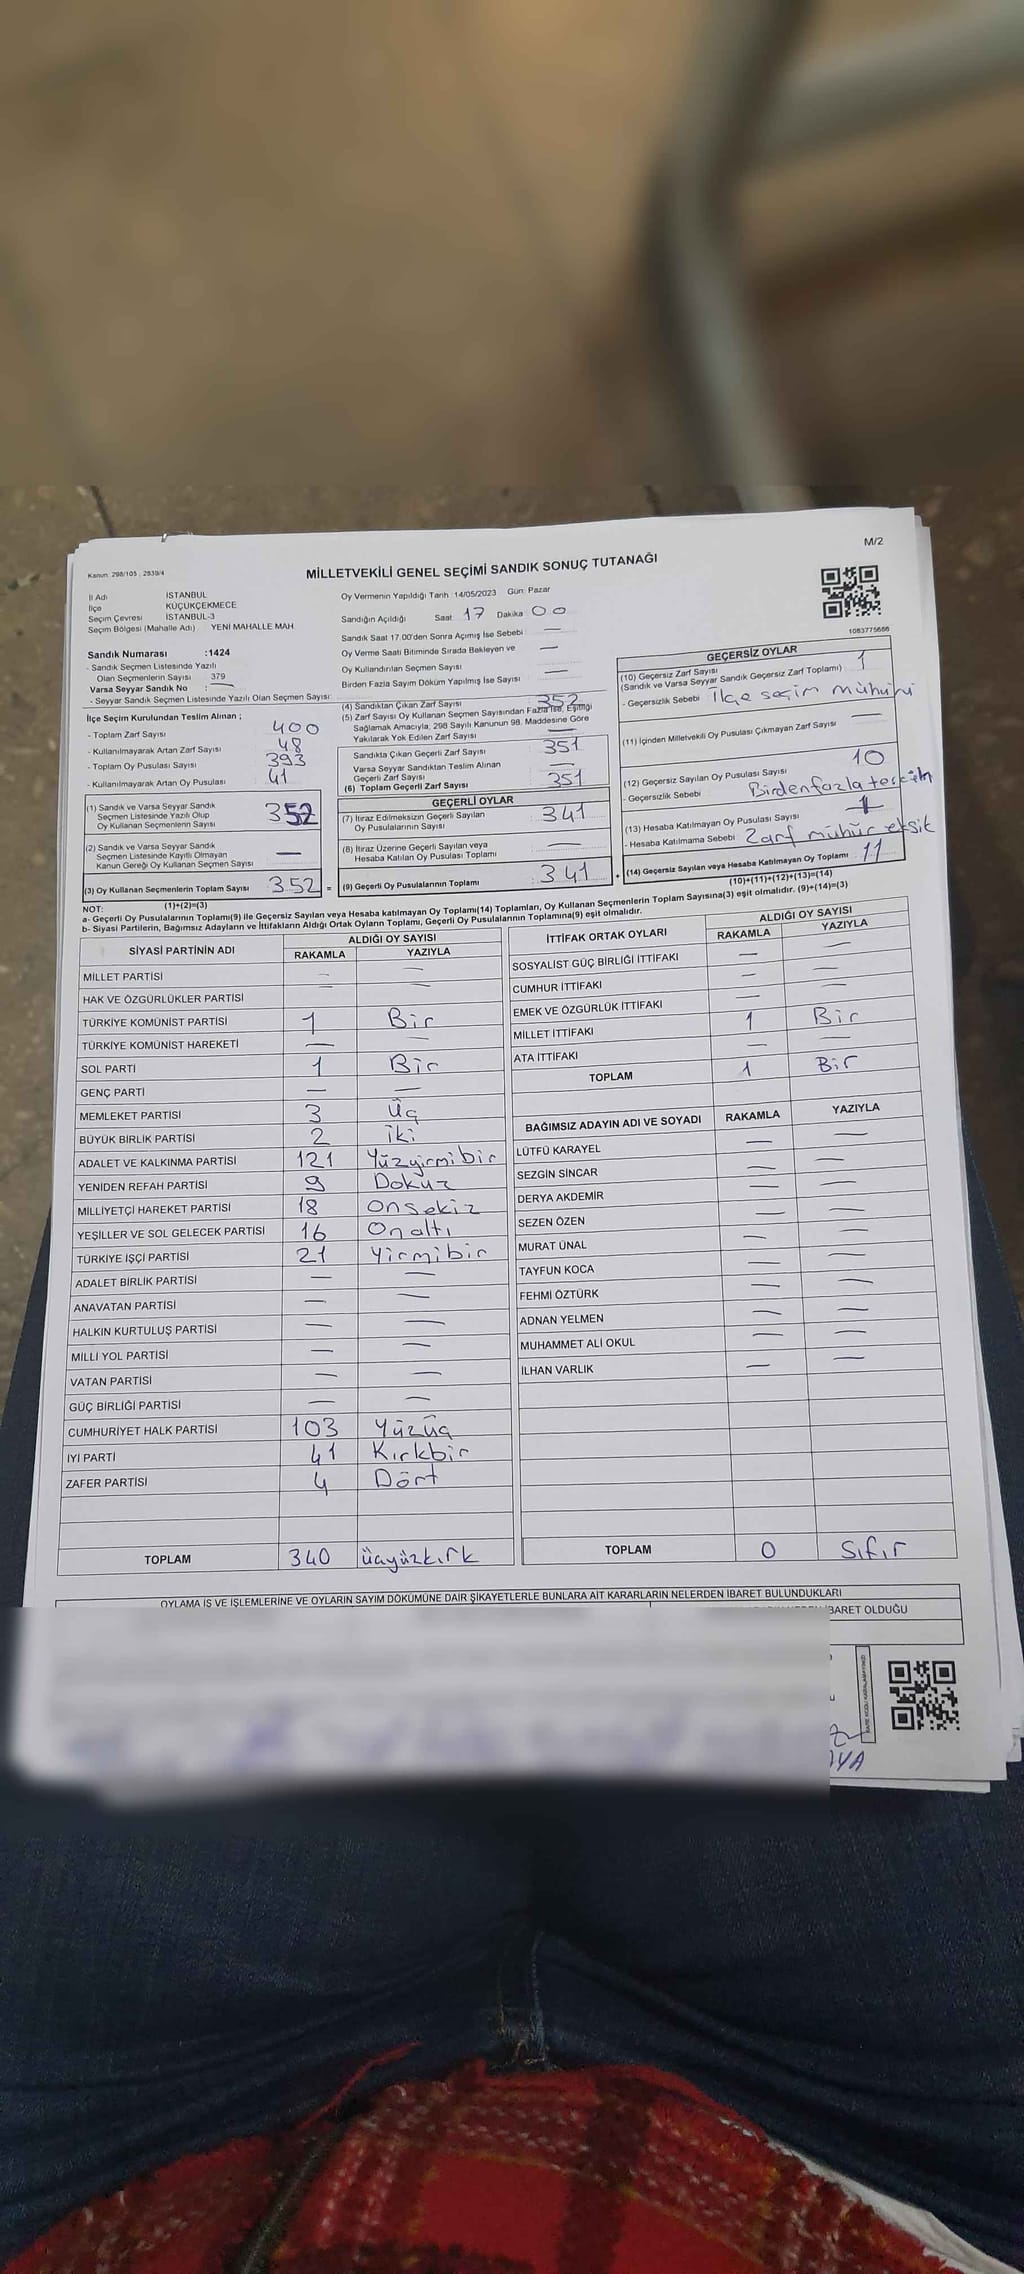 M/2
Kanun: 298/105 ; 2839/4
MİLLETVEKİLİ GENEL SEÇİMİ SANDIK SONUÇ TUTANAĞI
İl Adı İSTANBUL
İlçe KÜÇÜKÇEKMECE
Seçim Çevresi İSTANBUL-3
Seçim Bölgesi (Mahalle Adı) YENİ MAHALLE MAH.
Sandık Numarası :1424
- Sandık Seçmen Listesinde Yazılı
Olan Seçmenlerin Sayısı 379
Varsa Seyyar Sandık No : —
- Seyyar Sandık Seçmen Listesinde Yazılı Olan Seçmen Sayısı:
Oy Vermenin Yapıldığı Tarih :14/05/2023 Gün: Pazar
Sandığın Açıldığı Saat 17 Dakika 00
Sandık Saat 17.00'den Sonra Açımış İse Sebebi —
Oy Verme Saati Bitiminde Sırada Bekleyen ve —
Oy Kullandırılan Seçmen Sayısı
Birden Fazla Sayım Döküm Yapılmış İse Sayısı —
1083775666
İlçe Seçim Kurulundan Teslim Alınan ;
- Toplam Zarf Sayısı 400
- Kullanılmayarak Artan Zarf Sayısı 48
- Toplam Oy Pusulası Sayısı 393
- Kullanılmayarak Artan Oy Pusulası 41
(1) Sandık ve Varsa Seyyar Sandık
Seçmen Listesinde Yazılı Olup
Oy Kullanan Seçmenlerin Sayısı 352
(2) Sandık ve Varsa Seyyar Sandık
Seçmen Listesinde Kayıtlı Olmayan
Kanun Gereği Oy Kullanan Seçmen Sayısı —
(3) Oy Kullanan Seçmenlerin Toplam Sayısı 352 =
(1)+(2)=(3)
(4) Sandıktan Çıkan Zarf Sayısı 352
(5) Zarf Sayısı Oy Kullanan Seçmen Sayısından Fazla ise, Eşitliği
Sağlamak Amacıyla, 298 Sayılı Kanunun 98. Maddesine Göre
Yakılarak Yok Edilen Zarf Sayısı —
Sandıkta Çıkan Geçerli Zarf Sayısı 351
Varsa Seyyar Sandıktan Teslim Alınan
Geçerli Zarf Sayısı —
(6) Toplam Geçerli Zarf Sayısı 351
GEÇERLİ OYLAR
(7) İtiraz Edilmeksizin Geçerli Sayılan
Oy Pusulalarının Sayısı 341
(8) İtiraz Üzerine Geçerli Sayılan veya
Hesaba Katılan Oy Pusulası Toplamı —
(9) Geçerli Oy Pusulalarının Toplamı 341 +
GEÇERSİZ OYLAR
(10) Geçersiz Zarf Sayısı 1
(Sandık ve Varsa Seyyar Sandık Geçersiz Zarf Toplamı)
- Geçersizlik Sebebi İlçe seçim mühürü
(11) İçinden Milletvekili Oy Pusulası Çıkmayan Zarf Sayısı —
(12) Geçersiz Sayılan Oy Pusulası Sayısı 10
- Geçersizlik Sebebi Birden fazla tercih
(13) Hesaba Katılmayan Oy Pusulası Sayısı
- Hesaba Katılmama Sebebi Zarf mühür eksik
(14) Geçersiz Sayılan veya Hesaba Katılmayan Oy Toplamı 11
(10)+(11)+(12)+(13)=(14)
NOT:
a- Geçerli Oy Pusulalarının Toplamı(9) ile Geçersiz Sayılan veya Hesaba katılmayan Oy Toplamı(14) Toplamları, Oy Kullanan Seçmenlerin Toplam Sayısına(3) eşit olmalıdır. (9)+(14)=(3)
b- Siyasi Partilerin, Bağımsız Adayların ve İttifakların Aldığı Ortak Oyların Toplamı, Geçerli Oy Pusulalarının Toplamına(9) eşit olmalıdır.
SİYASİ PARTİNİN ADI ALDIĞI OY SAYISI
RAKAMLA YAZIYLA
MİLLET PARTİSİ — —
HAK VE ÖZGÜRLÜKLER PARTİSİ — —
TÜRKİYE KOMÜNİST PARTİSİ 1 Bir
TÜRKİYE KOMÜNİST HAREKETİ — —
SOL PARTİ 1 Bir
GENÇ PARTİ — —
MEMLEKET PARTİSİ 3 Üç
BÜYÜK BİRLİK PARTİSİ 2 İki
ADALET VE KALKINMA PARTİSİ 121 Yüzyirmibir
YENİDEN REFAH PARTİSİ 9 Dokuz
MİLLİYETÇİ HAREKET PARTİSİ 18 Onsekiz
YEŞİLLER VE SOL GELECEK PARTİSİ 16 Onaltı
TÜRKİYE İŞÇİ PARTİSİ 21 Yirmibir
ADALET BİRLİK PARTİSİ — —
ANAVATAN PARTİSİ — —
HALKIN KURTULUŞ PARTİSİ — —
MİLLİ YOL PARTİSİ — —
VATAN PARTİSİ — —
GÜÇ BİRLİĞİ PARTİSİ — —
CUMHURİYET HALK PARTİSİ 103 Yüzüç
İYİ PARTİ 41 Kırkbir
ZAFER PARTİSİ 4 Dört
TOPLAM 340 üçyüzkırk
İTTİFAK ORTAK OYLARI ALDIĞI OY SAYISI
RAKAMLA YAZIYLA
SOSYALİST GÜÇ BİRLİĞİ İTTİFAKI — —
CUMHUR İTTİFAKI — —
EMEK VE ÖZGÜRLÜK İTTİFAKI — —
MİLLET İTTİFAKI 1 Bir
ATA İTTİFAKI — —
TOPLAM 1 Bir
BAĞIMSIZ ADAYIN ADI VE SOYADI RAKAMLA YAZIYLA
LÜTFÜ KARAYEL — —
SEZGİN SİNCAR — —
DERYA AKDEMİR — —
SEZEN ÖZEN — —
MURAT ÜNAL — —
TAYFUN KOCA — —
FEHMİ ÖZTÜRK — —
ADNAN YELMEN — —
MUHAMMET ALİ OKUL — —
İLHAN VARLIK — —
TOPLAM 0 Sıfır
OYLAMA İŞ VE İŞLEMLERİNE VE OYLARIN SAYIM DÖKÜMÜNE DAİR ŞİKAYETLERLE BUNLARA AİT KARARLARIN NELERDEN İBARET BULUNDUKLARI
İBARET OLDUĞU